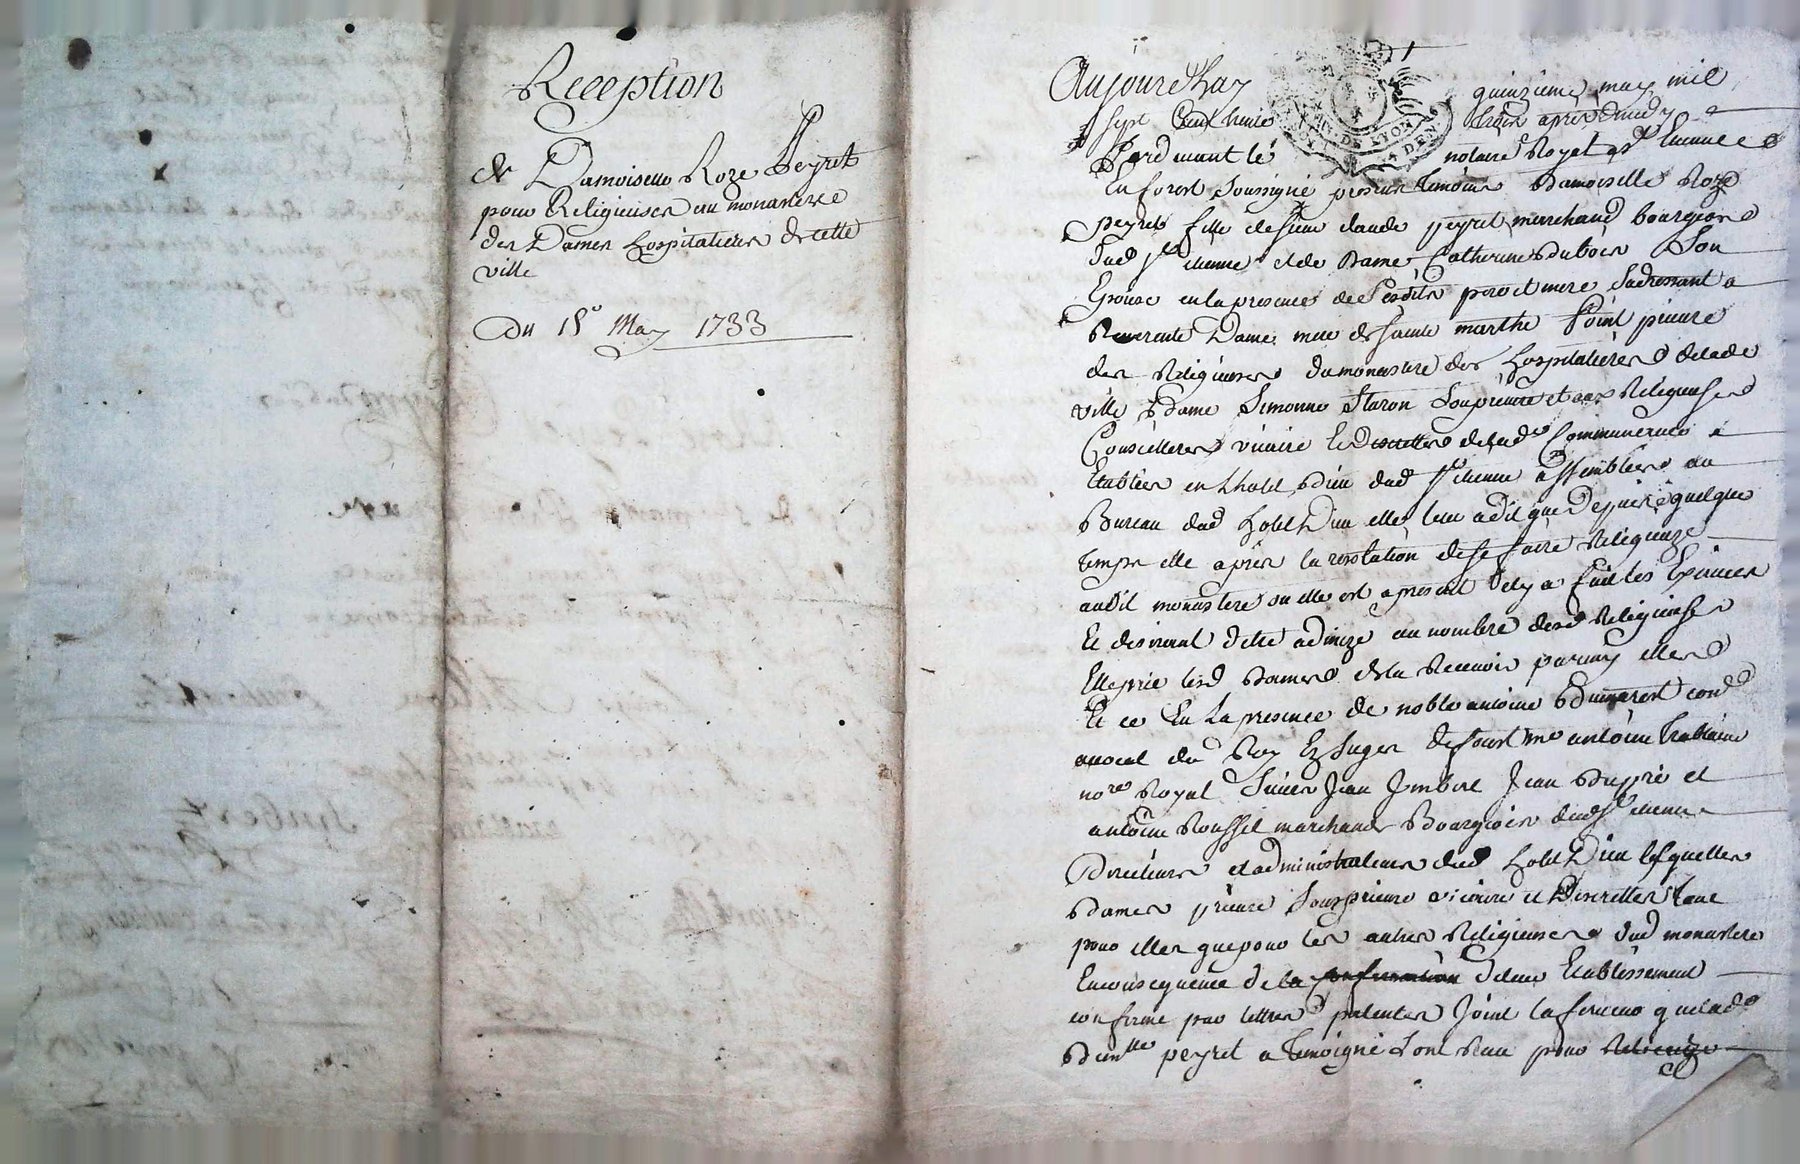 Reception
de Damoiselle Roze Peyret
pour Religieuse au monastere
des Dames hospitalieres de cette
ville
Du 15e May 1733
Aujourdhuy quinzieme may mil
sept cent trente trois apres midy
Pardevant le notaire Royal a St Etienne
En forest soussigné presens temoins Damoiselle Roze
peyret fille de sieur claude peyret marchand bourgeois
dud St etienne et de Dame Catherine Dubois son
Epouse en la presence de sesdits pere et mere sadressant a
Reverente Dame mere de sainte marthe prieure
des Religieuses du monastere des hospitalieres de lade
ville Dame Simonne Staron souprieure et aux Religieuses
Conseilleres vicaire et discrettes de lade Communeauté
Etablies en Lhotel Dieu dud St etienne assemblées au
Bureau dud hotel Dieu elle leur a dit que Depuis quelque
temps elle a pris la resolution de se faire Religieuze
audit monastere ou elle est a present et y a fait les Exercices
Et desirant d'etre admize au nombre desd Religieuses
Elle prie lesd Dames de la Recevoir parmy elles
Et ce En La presence de noble antoine Dumarest cone
avocat du Roy Ez Juges de forest Me antoine
nore Royal Sieurs Jean Jmbert Jean Dupré et
antoine Roussel marchands Bourgeois dud St etienne
Directeurs et administrateurs dud hotel Dieu lesquelles
Dames prieure sousprieure vicaire et Discrettes tant
pour elles que pour les autres Religieuses dud monastere
En consequence de la confirmation de leur Etablissement
confirmé par lettres patentes Joint la ferveur que lade
Damlle peyret a temoigné Lont Recu pour Religieuze